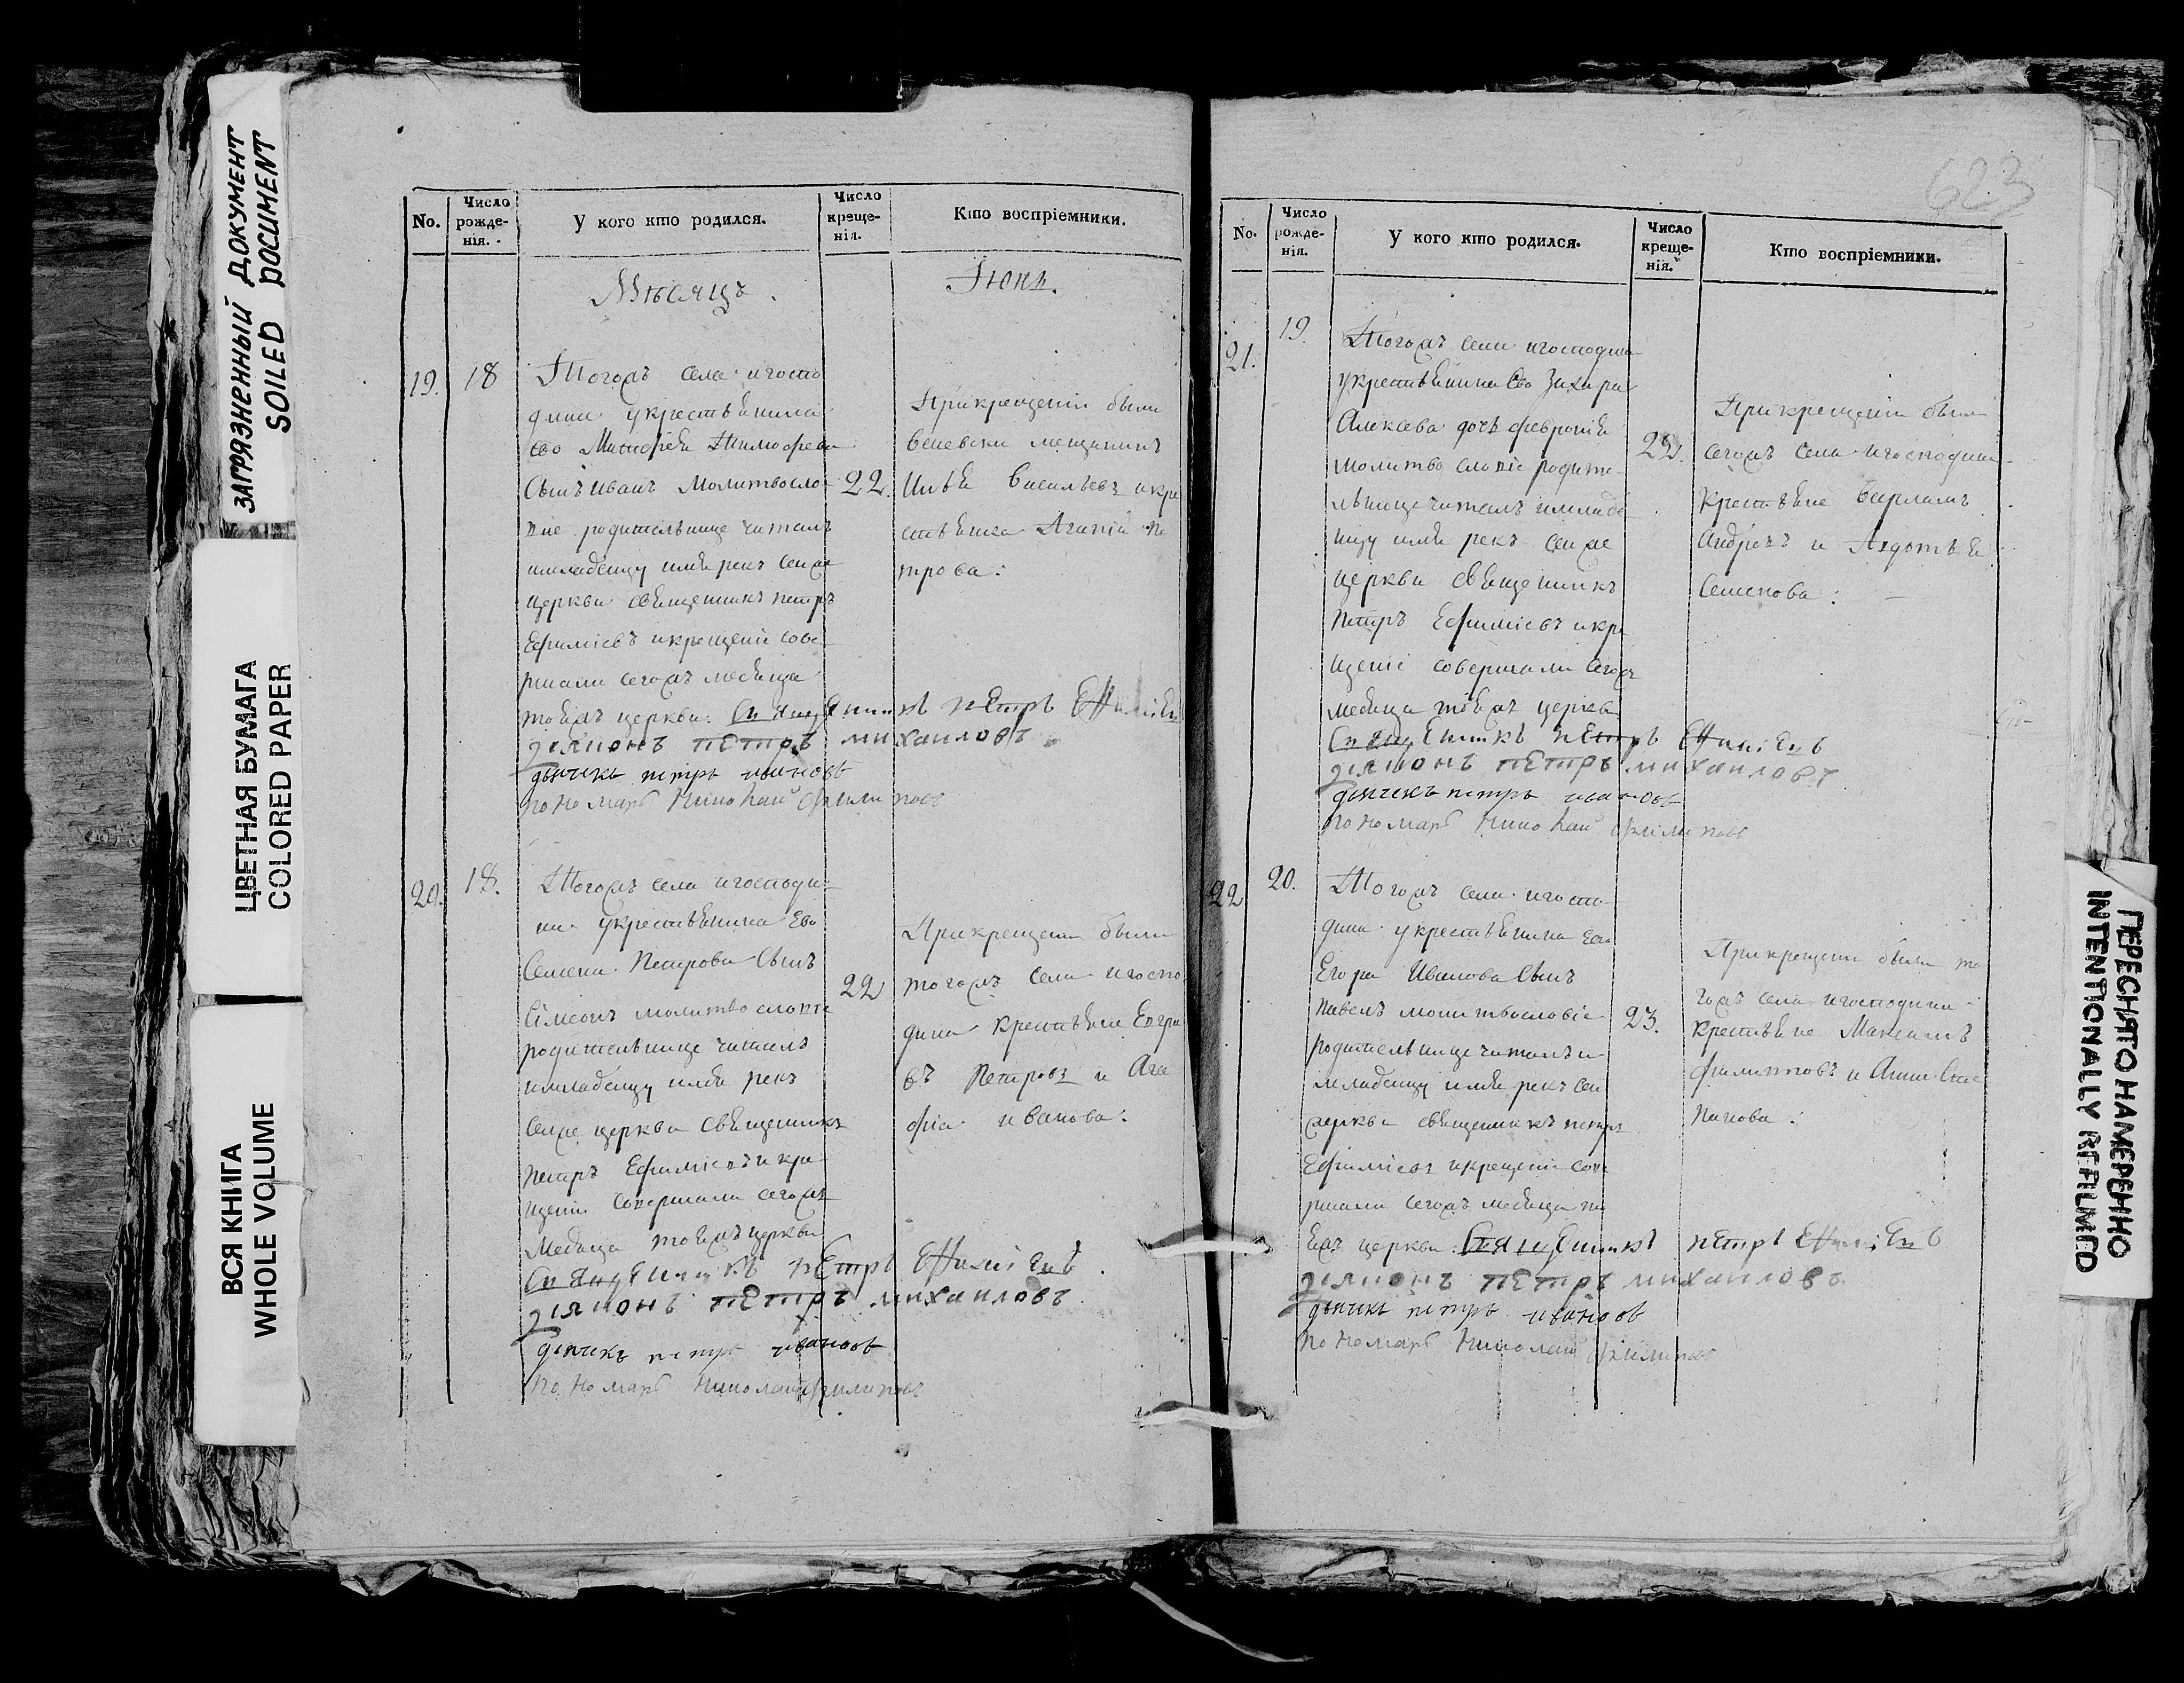 ЗАГРЯЗНЕННЫЙ ДОКУМЕНТ
SOILED DOCUMENT
ЦВЕТНАЯ БУМАГА
COLORED PAPER
ВСЯ КНИГА
WHOLE VOLUME
No.
Число рожде-нія.
У кого кто родился.
Число креще-нія.
Кто воспріемники.
Мѣсяцъ
Іюнь.
19.
18
Тогожъ села и госпо
дина у крестьянина
ево Матфея Тимофеева
Сынъ Иванъ молитвосло
вие родительнице читалъ
и младенцу имя рекъ сея же
церкви священникъ Петръ
Ефимiевъ и крещение сове
ршали сегожъ месяца
тоеяжъ церкви. Священникъ Петръ Ефимiевъ
дiяконъ петръ михаиловъ
дьячекъ петръ ивановъ
пономарь Николай Филиповъ
22.
При крещении были
веневски мещанинъ
Васильевъ и кре
стьянка Агапия Пе
трова:
20.
18.
Тогожъ села и господи
на у крестьянина Ево
Семена Петрова Сынъ
Симеонъ молитвословие
родительнице читалъ
и младенцу имя рекъ
Сея же церкви Священникъ
Петръ Ефимiевъ и кре
щение совершали сегожъ
месяца тоеяжъ церкви
Священникъ Петръ Ефимiевъ.
дiяконъ петръ михаиловъ
дьячекъ петръ ивановъ
пономарь Николай Филиповъ
22
При крещении были
тогожъ села и госпо
дина крестьяне Евгра
въ Петровъ и Ага
фiа иванова:
623
No.
Число рожде-нія.
У кого кто родился.
Число креще-нія.
Кто воспріемники.
21.
19.
Тогожъ села и господина
у крестьянина Ево Захара
Алексева дочь феврония
молитвословiе родите
льнице читалъ и младе
нцу имя рекъ сея же
церкви священникъ
Петръ Ефимiевъ и кре
щенiе совершали сегожъ
месяца тоеяжъ церкви
Священникъ Петръ Ефимiевъ
дiяконъ петръ михаиловъ
дьячекъ петръ ивановъ
пономарь Николай Филиповъ
При крещении были
сегожъ села и господина
крестьяне Варламъ
Андреевъ и Авдотья
Семенова:
22
20.
Тогожъ села и госпо
дина у крестьянина Ево
Егора Иванова Сынъ
Павелъ молитвословiе
родительнице читалъ и
младенцу имя рекъ сея
же церкви священникъ петръ
Ефимiевъ и крещение сове
ршали сегожъ месяца то
еяжъ церкви. Священникъ Петръ Ефимiевъ
дiяконъ петръ михаиловъ
дьячекъ петръ ивановъ
пономарь Николай Филиповъ
23.
При крещении были то
гожъ села и господина
крестьяне Максимъ
Филипповъ и Анна Сте
панова:
ПЕРЕСНЯТО НАМЕРЕННО
INTENTIONALLY REFILMED